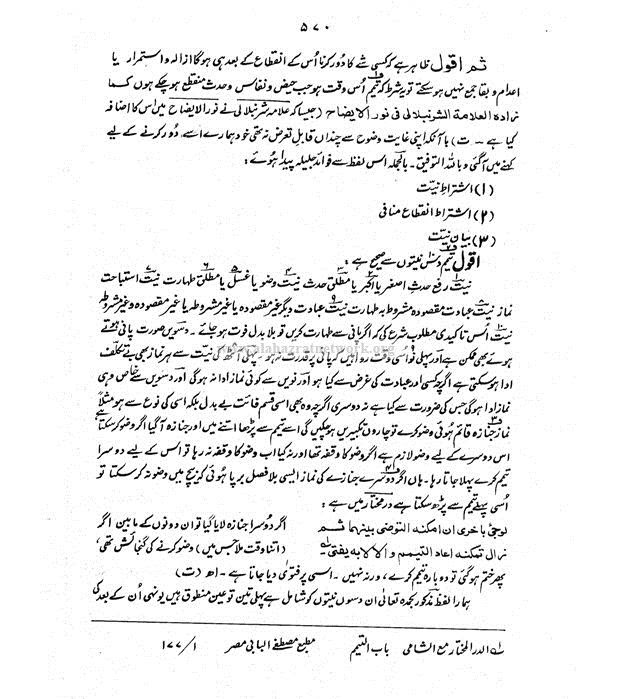 ۵۷۰
ثم اقول ظاہر ہے کہ کسی شے کا دُور کرنا اُس کے انقطاع کے بعد ہی ہوگا ازالہ و استمرار یا
اعدام و بقا جمع نہیں ہوسکتے تو یہ شرط کہ تیمم اُس وقت ہو جب حیض و نفاس وحدث منقطع ہوچکے ہوں کما
زادہ العلامۃ الشرنبلالی فی نور الایضاح (جیسا کہ علامہ شرنبلالی نے نورالایضاح میں اس کا اضافہ
کیا ہے ۔ ت) با آنکہ اپنی غایت وضوح سے چنداں قابلِ تعرض نہ تھی خود ہمارے اسی دُور کرنے کے لیے
کہنے میں آگئی و باللہ التوفیق ۔ بالجملہ اس لفظ سے فوائد جلیلہ پیدا ہُوئے :
(۱) اشتراطِ نیّت
(۲) اشتراط انقطاع منافی
(۳) بیان نیّت
اقول تیمم دس نیتوں سے صحیح ہے :
نیت رفع حدث اصغر یا اکبر یا مطلق حدث نیت وضو یا غسل یا مطلق طہارت نیت استباحت
نماز نیت عبادت مقصودہ مشروط بہ طہارت نیت عبادت دیگر غیر مقصودہ یا غیر مشروطہ یا غیر مقصودہ وغیر مشروطہ
نیت اُس تاکیدی مطلوب شرع کی کہ اگر پانی سے طہارت کریں تو بلا بدل فوت ہوجائے ۔ دسویں صورت پانی ہوتے
ہوئے بھی ممکن ہے اور پہلی نو اسی وقت روا ہیں کہ پانی پر قدرت نہ ہو ۔ پہلی آٹھ کی نیت سے ہر نماز بھی بے تکلف
ادا ہوسکتی ہے اگرچہ کسی اور عبادت کی غرض سے کیا ہو اور نویں سے کوئی نماز ادا نہ ہوگی اور دسویں سے خاص وہی
نماز ادا ہوگی جس کی ضرورت سے کیا ہے نہ دوسری اگرچہ وہ بھی اسی قسم فائت بے بدل بلکہ اسی کی نوع سے ہو مثلاً
نماز جنازہ قائم ہُوئی وضو کرے تو چاروں تکبیریں ہوچکیں گی اسے تیمم سے پڑھا اتنے میں اور جنازہ آگیا اگر وضو کرسکتا ہے
اس دوسرے کے لیے وضو لازم ہے اگر وضو کا وقفہ تھا اور نہ کیا اب وضو کا وقفہ نہ رہا تو اس کے لیے دوسرا
تیمم کرے پہلا جاتا رہا ۔ ہاں اگر دوسرے جنازے کی نماز ایسی بلافصل برپا ہُوئی کہ بیچ میں وضو نہ کرسکتا تو
اُسی پہلے تیمم سے پڑھ سکتا ہے درمختار میں ہے :
لوجئ باخری ان امکنہ التوضی بینہما ثم اگر دُوسرا جنازہ لایا گیا تو ان دونوں کے مابین اگر
زال تمکنہ اعاد التیمم والا لا بہ یفتی (اتنا وقت ملا جس میں) وضو کرنے کی گنجائش تھی،
پھر ختم ہوگئی تو دوبارہ تیمم کرے، ورنہ نہیں ۔ اسی پر فتوٰی دیا جاتا ہے ۔ اھ (ت)
ہمارا لفظ مذکور بحمدہٖ تعالٰی ان دسوں نیتوں کو شامل ہے پہلی تین تو عین منطوق ہیں یونہی اُن کے بعد کی
الدر المختار مع الشامی باب التیمم مطبع مصطفی البابی مصر ۱/۱۷۷